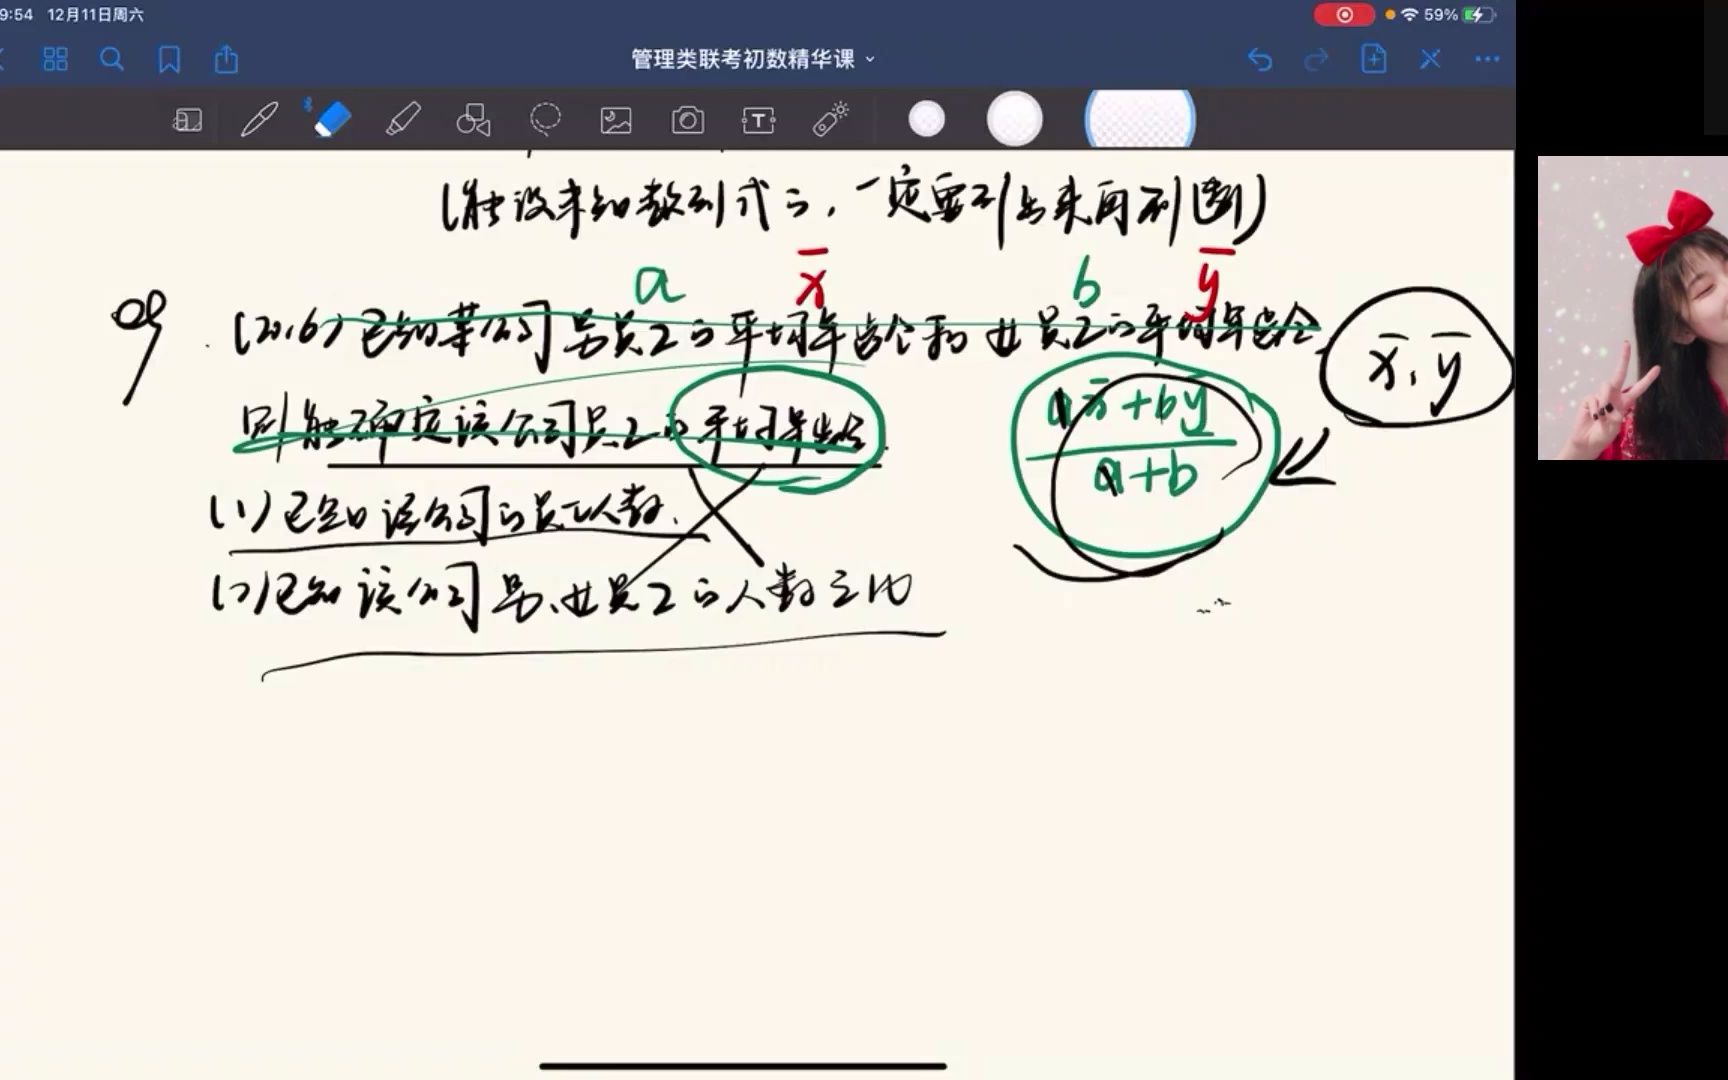 9:54 12月11日周六
59%
管理类联考初数精华课
T
(能设未知数列式子,一定要列出来再判断)
a x̄ b ȳ
09 (2016)已知某公司男员工的平均年龄和女员工的平均年龄
x̄, ȳ
则能确定该公司员工的平均年龄.
ax̄+bȳ
a+b
(1)已知该公司的员工人数.
(2)已知该公司男、女员工的人数之比